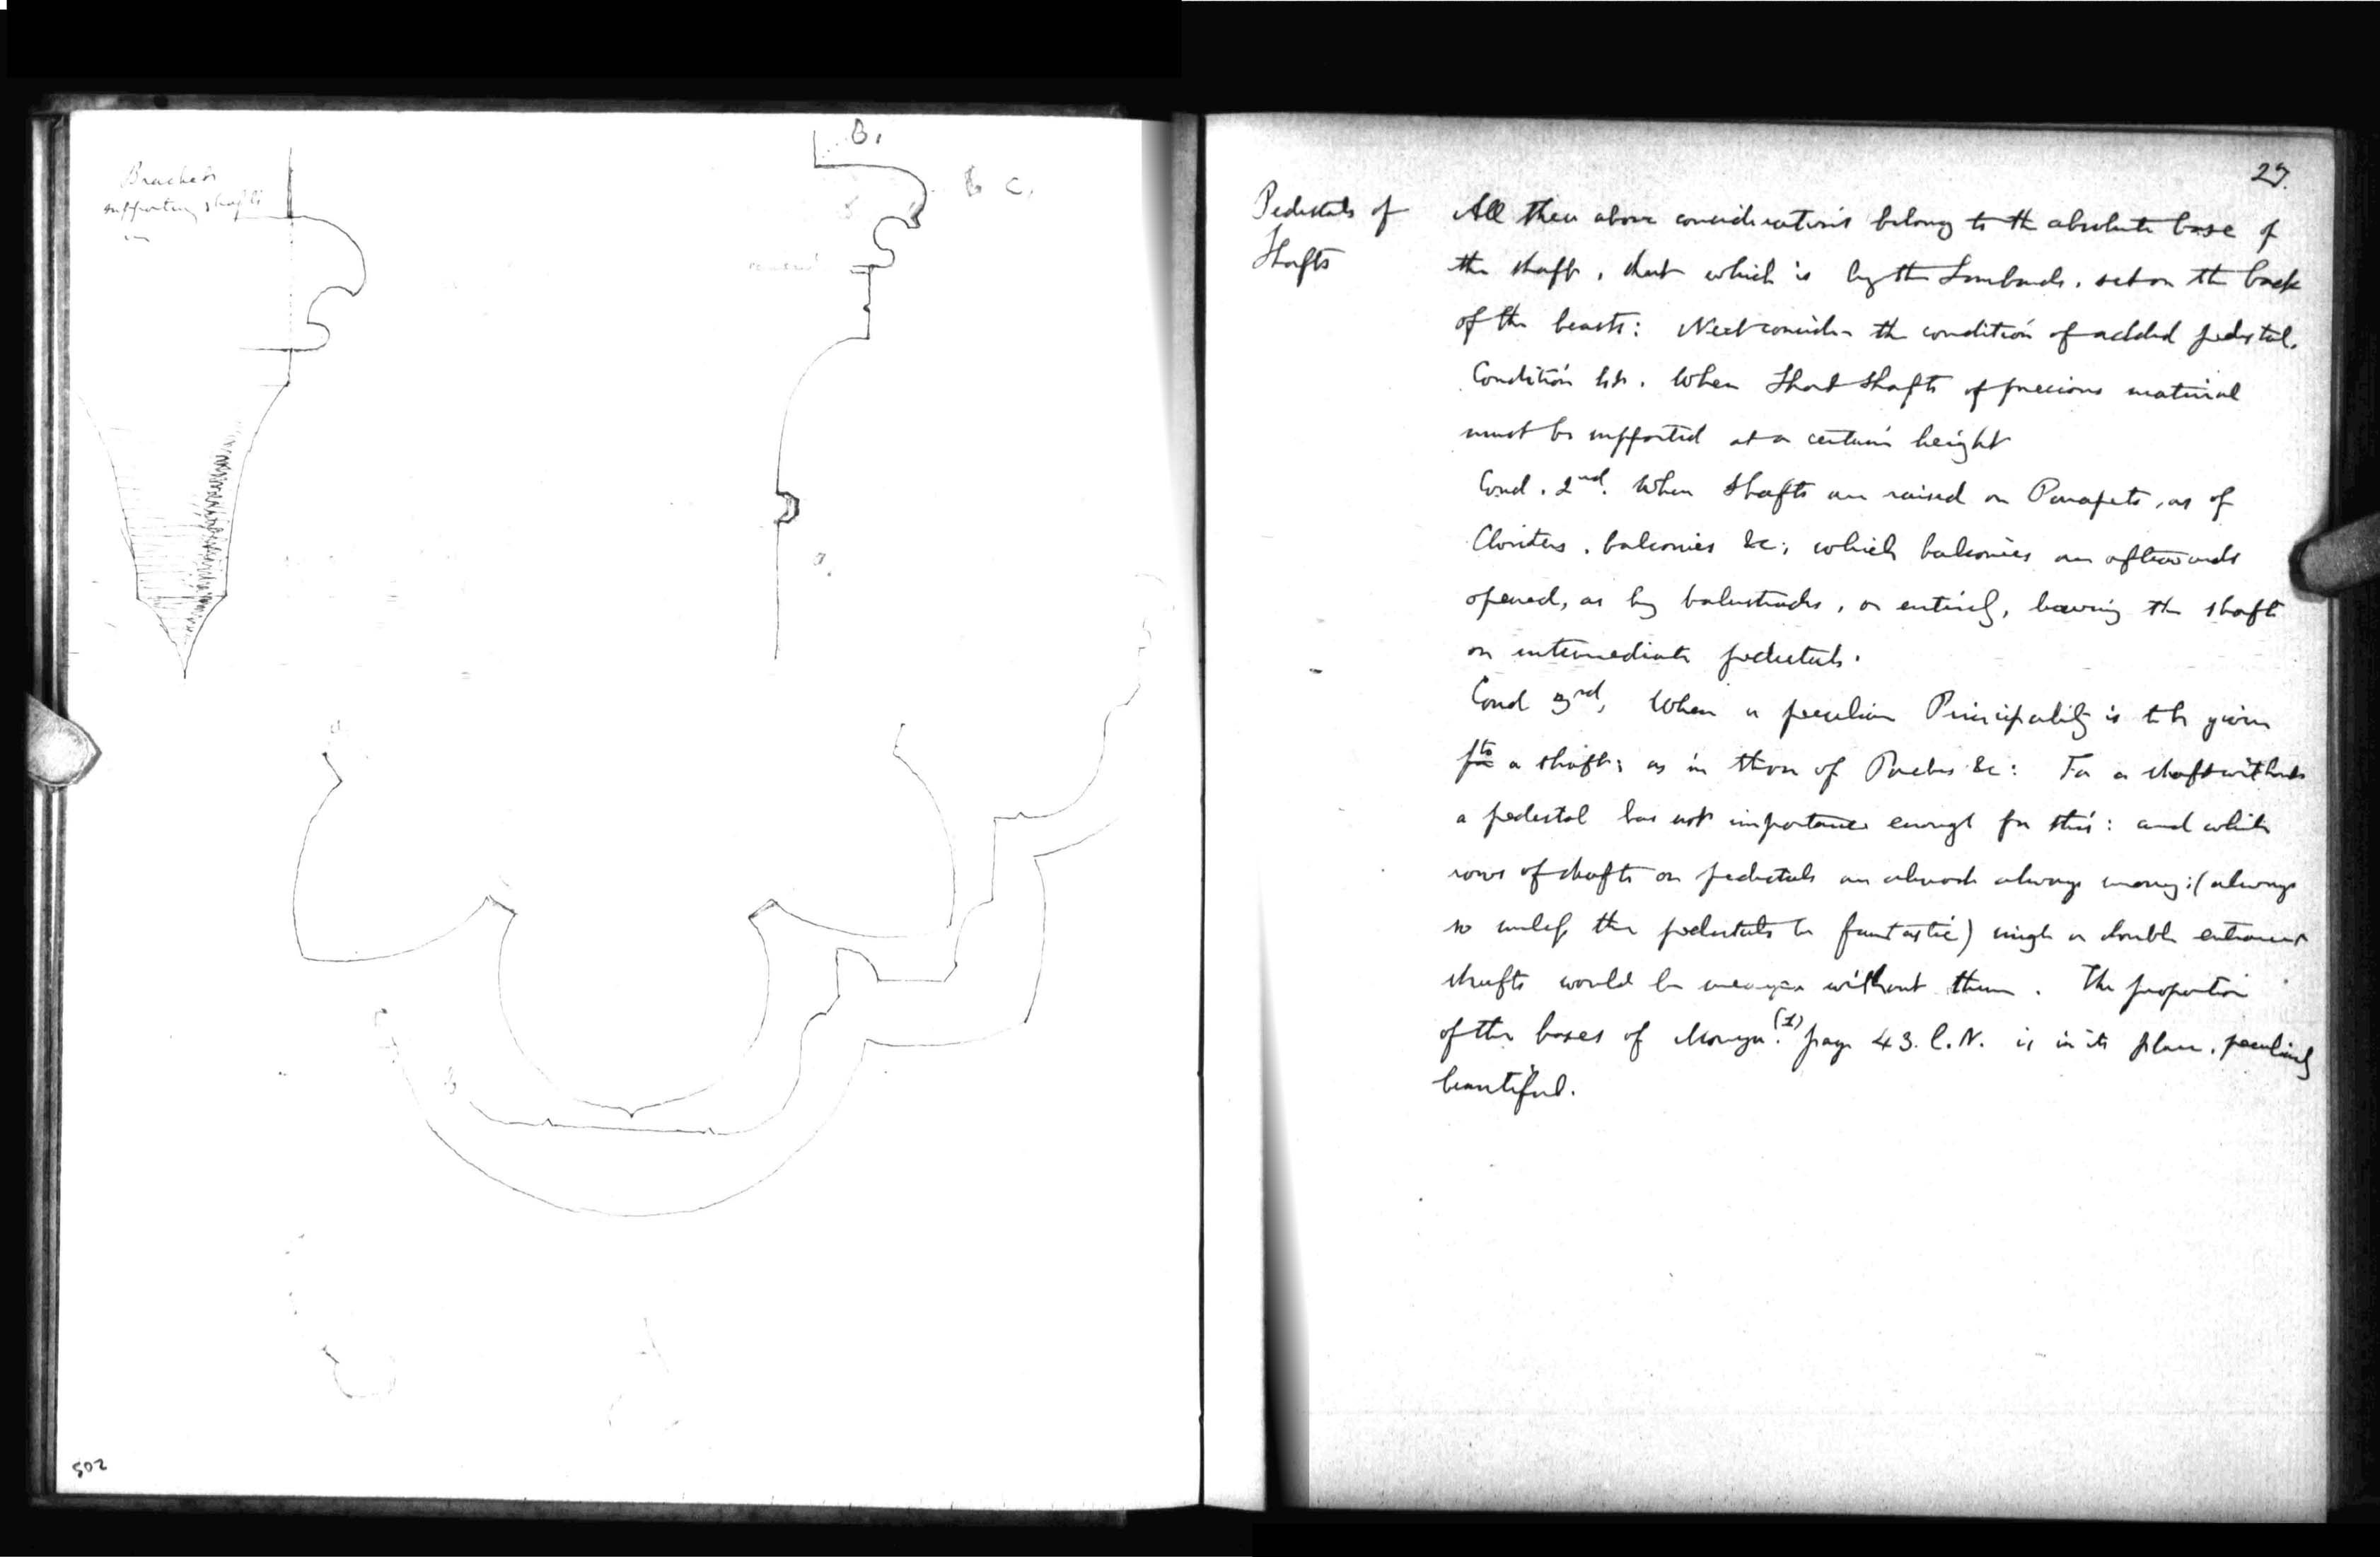 Brackets
supporting shafts
in
B.
B C.
a.
a
b
502
27.
Pedestals of
Shafts
All these above considerations belong to the absolute base of
the shaft, that which is by the Lombards, set on the back
of the beasts: Next consider the condition of added pedestal.
Condition 1st. When Short shafts of precious material
must be supported at a certain height
Cond. 2nd. When Shafts are raised on Parapets, as of
Cloisters, balconies &c; which balconies are afterwards
opened, as by balustrades, or entirely, leaving the shaft
on intermediate pedestals.
Cond 3rd, When a peculiar Principality is to be given
to a shaft; as in those of Porches &c: For a shaft without
a pedestal has not importance enough for this: and while
rows of shafts on pedestals are almost always wrong: (always
so unless the pedestals be fantastic) single or double entrance
shafts would be meagre without them. The proportion
of the bases of (1) page 43. l. N. is in its place, peculiarly
beautiful.